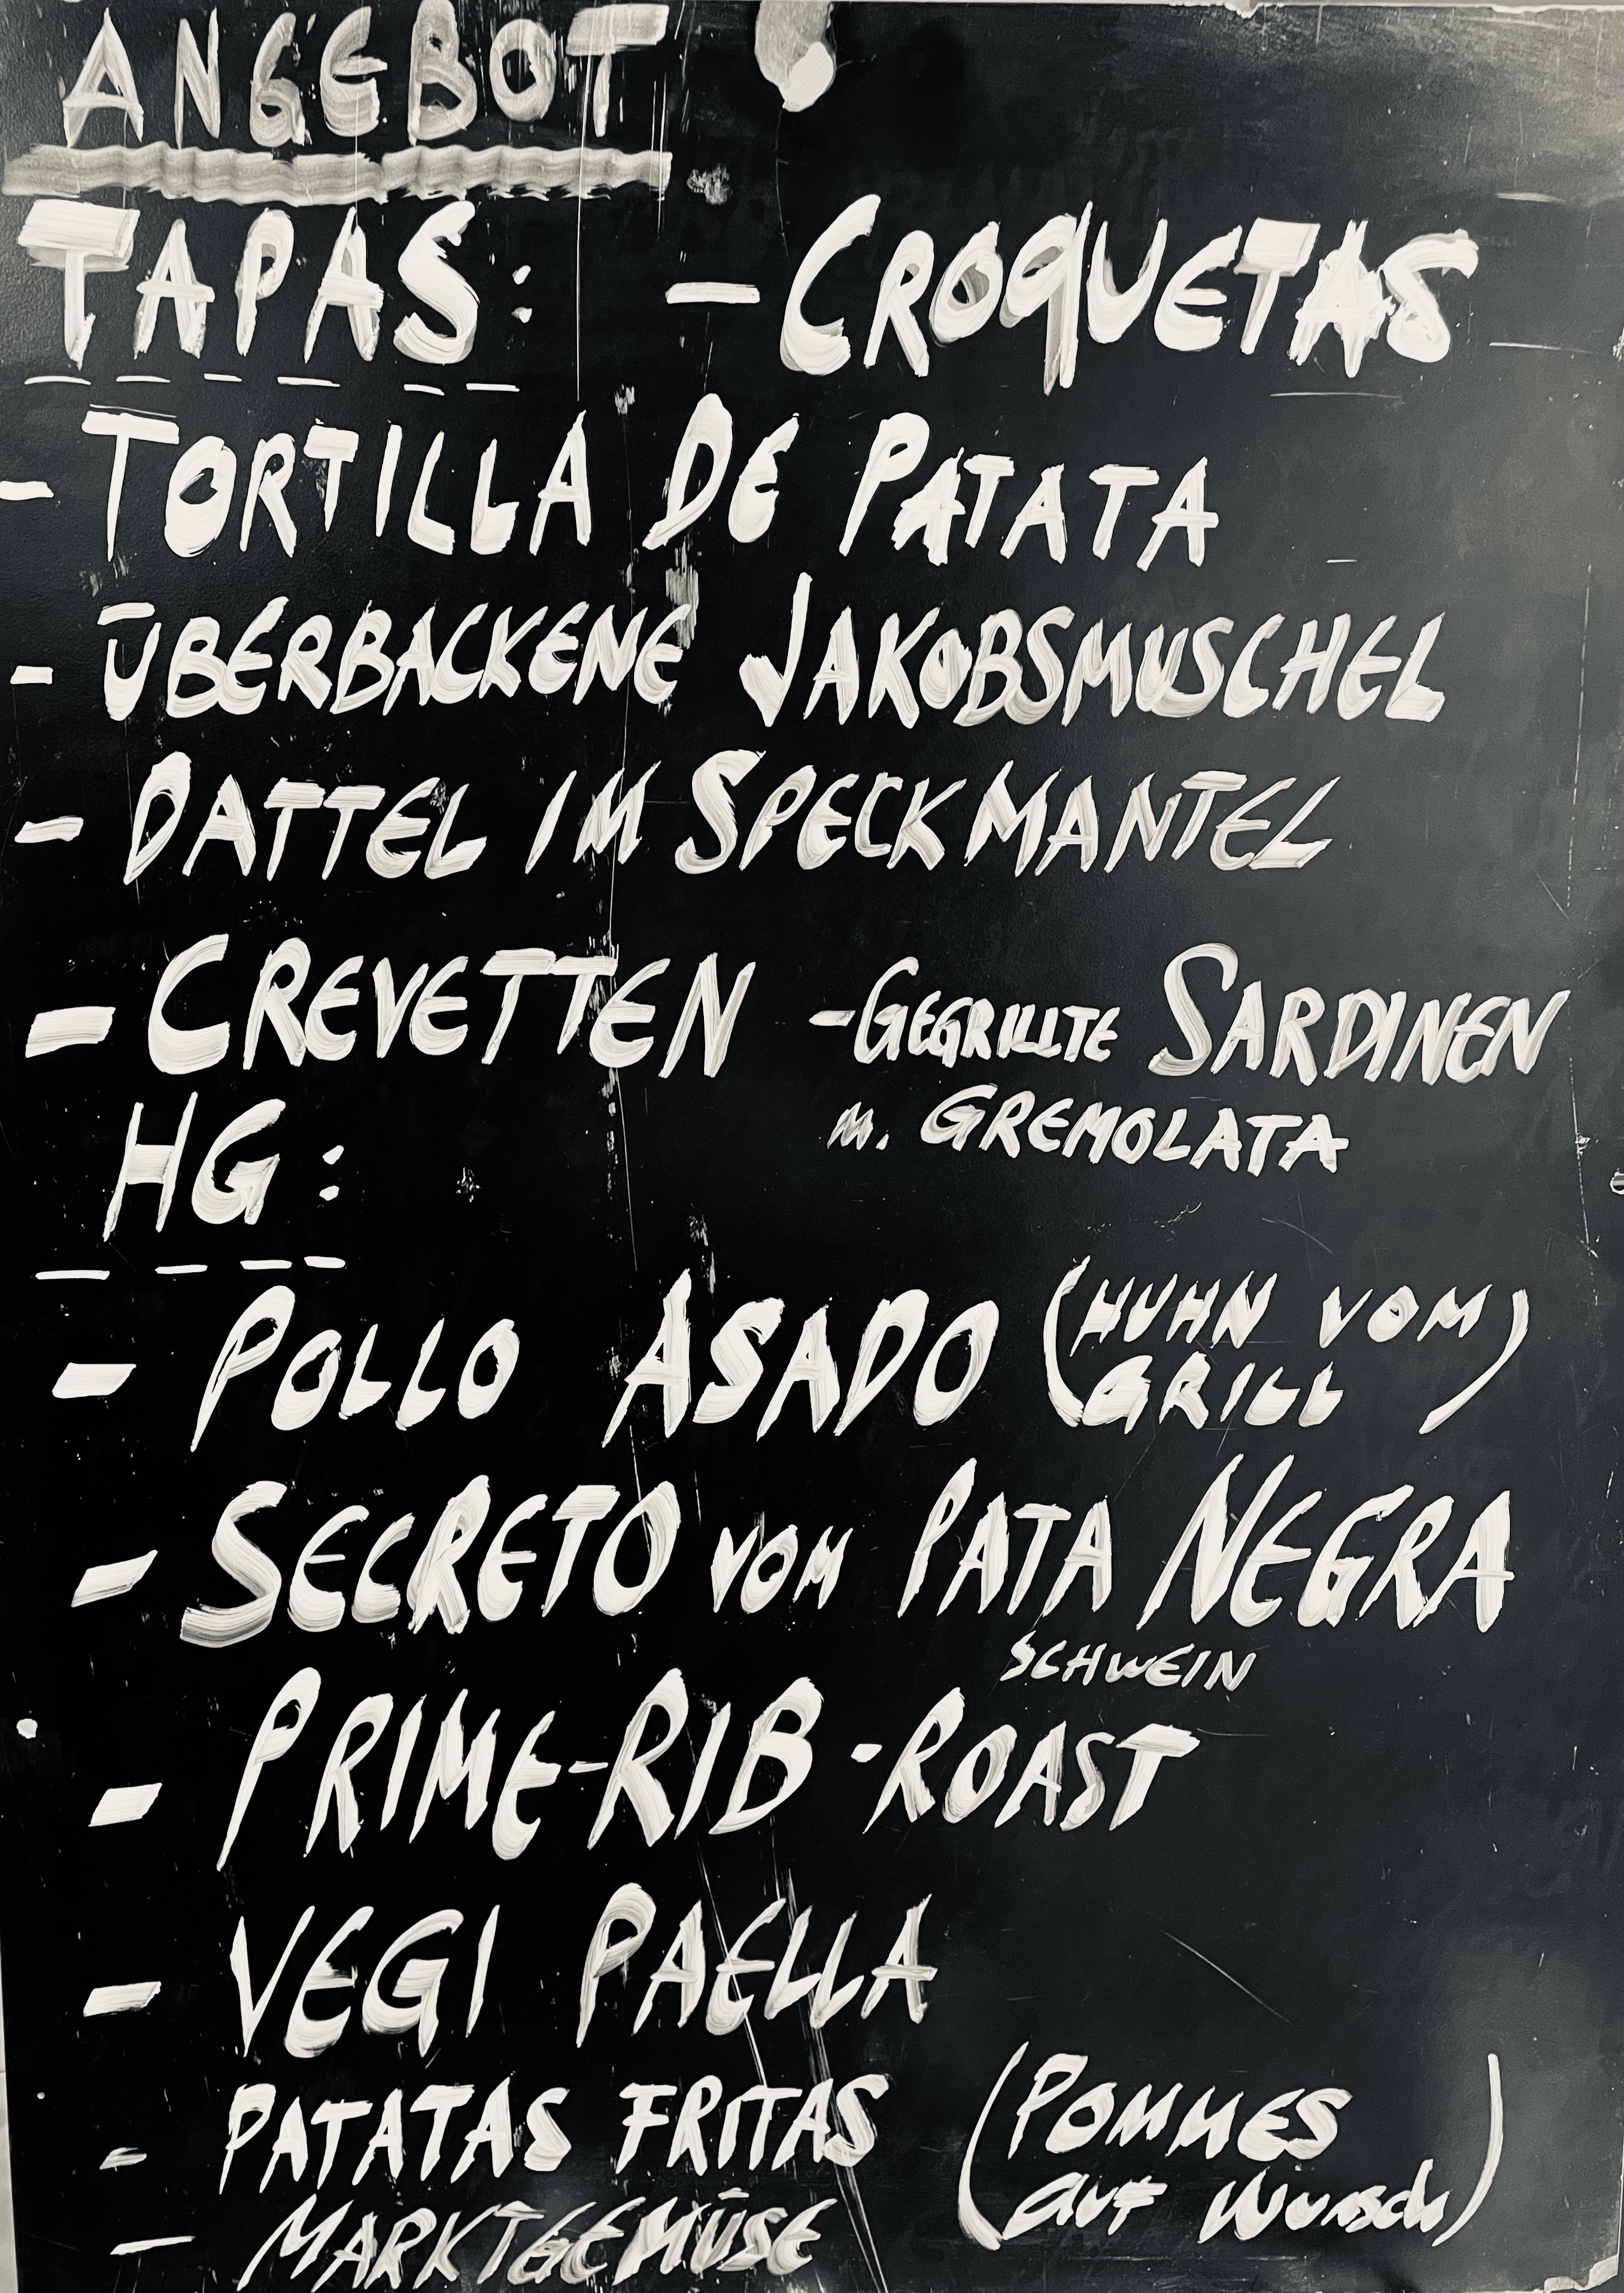 ANGEBOT
TAPAS: – CROQUETAS
- TORTILLA DE PATATA
- ÜBERBACKENE JAKOBSMUSCHEL
- DATTEL IM SPECKMANTEL
- CREVETTEN - GEGRILLTE SARDINEN
M. GREMOLATA
HG:
- POLLO ASADO (HUHN VOM
GRILL)
- SECRETO VOM PATA NEGRA
SCHWEIN
- PRIME-RIB-ROAST
- VEGI PAELLA
- PATATAS FRITAS (POMMES
auf Wunsch)
- MARKTGEMÜSE